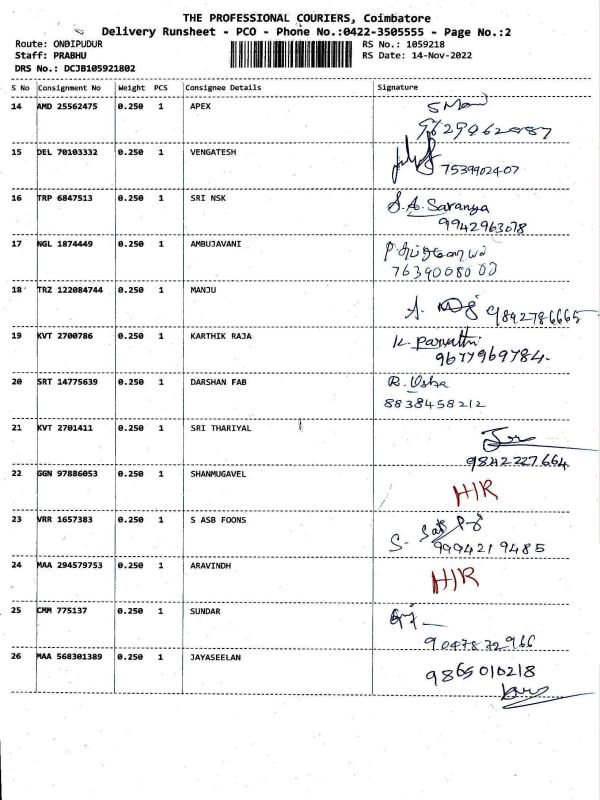 THE PROFESSIONAL COURIERS, Coimbatore
Delivery Runsheet - PCO - Phone No.:0422-3505555 - Page No.:2
Route: ONDIPUDUR RS No.: 1059218
Staff: PRABHU RS Date: 14-Nov-2022
DRS No.: DCJB105921802
S No Consignment No Weight PCS Consignee Details Signature
14 AMD 25562475 0.250 1 APEX
15 DEL 70103332 0.250 1 VENGATESH
7539902407
16 TRP 6847513 0.250 1 SRI NSK S.A. Saranya
9942963078
17 NGL 1874449 0.250 1 AMBUJAVANI
7639008000
18 TRZ 122084744 0.250 1 MANJU
9842786665
19 KVT 2700786 0.250 1 KARTHIK RAJA K. Parvathi
9677969784
20 SRT 14775639 0.250 1 DARSHAN FAB R. Usha
8838458212
21 KVT 2701411 0.250 1 SRI THARIYAL
9842227664
22 GGN 97886053 0.250 1 SHANMUGAVEL
H/R
23 VRR 1657383 0.250 1 S ASB FOONS
9994219485
24 MAA 294579753 0.250 1 ARAVINDH H/R
25 CMM 775137 0.250 1 SUNDAR
9047872966
26 MAA 568301389 0.250 1 JAYASEELAN 9865010218